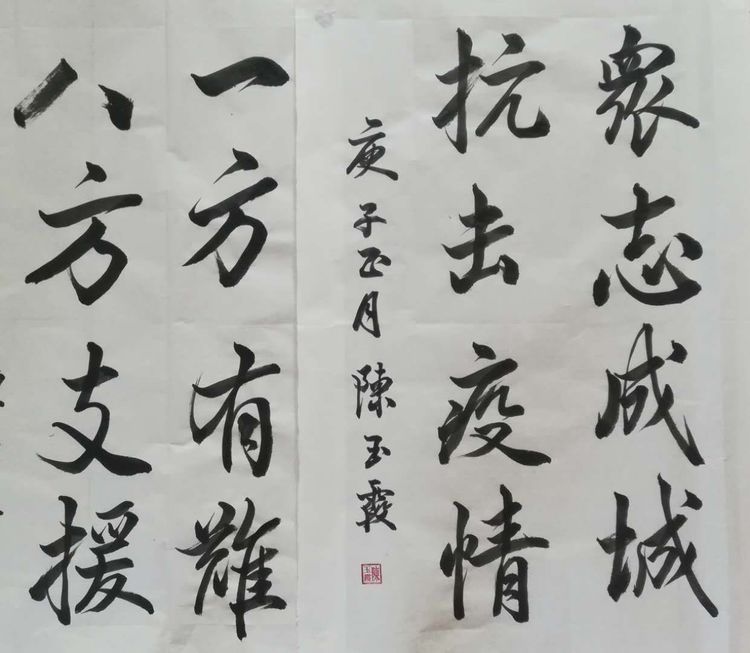 眾志成城
抗击疫情
庚子正月 陳玉霞
一方有難
八方支援